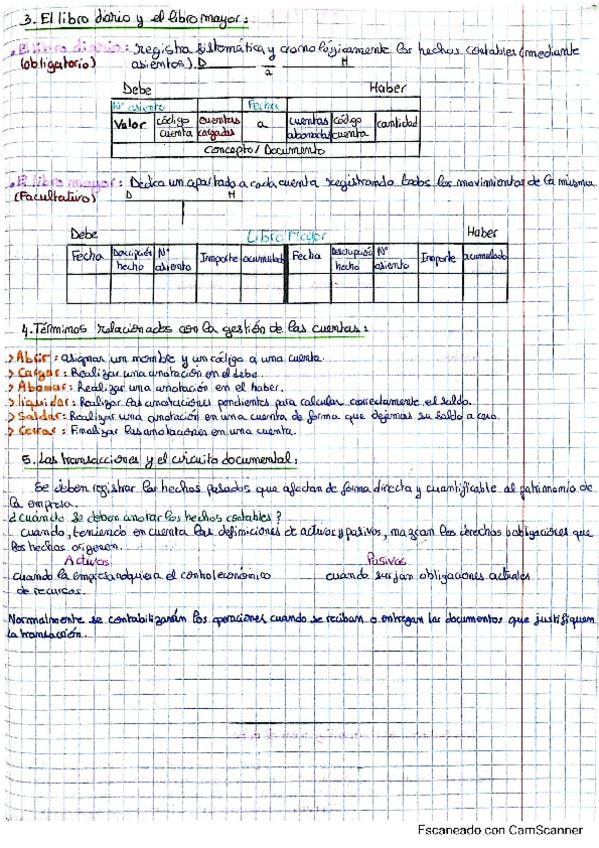 3. El libro diario y el libro mayor:
• El libro diario: registra sistemática y cronológicamente los hechos contables (mediante
(obligatorio) asientos). D a H
Debe Haber
Nº asiento Fecha
Valor código cuenta cuentas cargadas a cuentas abonadas código cuenta cantidad
Concepto / Documento
• El libro mayor: Dedica un apartado a cada cuenta registrando todos los movimientos de la misma
(Facultativo) D H
Debe Libro Mayor Haber
Fecha Descripción hecho Nº asiento Importe acumulado Fecha Descripción hecho Nº asiento Importe acumulado
4. Términos relacionados con la gestión de las cuentas:
> Abrir: asignar un nombre y un código a una cuenta.
> Cargar: Realizar una anotación en el debe.
> Abonar: Realizar una anotación en el haber.
> liquidar: Realizar las anotaciones pendientes para calcular correctamente el saldo.
> Saldar: Realizar una anotación en una cuenta de forma que dejamos su saldo a cero.
> Cerrar: Finalizar las anotaciones en una cuenta.
5. Las transacciones y el circuito documental:
Se deben registrar los hechos pasados que afectan de forma directa y cuantificable al patrimonio de
la empresa.
¿Cuándo se deben anotar los hechos contables?
cuando, teniendo en cuenta las definiciones de activos y pasivos, nazcan los derechos u obligaciones que
los hechos originen.
Activos Pasivos
cuando la empresa adquiera el control económico cuando surjan obligaciones actuales.
de recursos.
Normalmente se contabilizarán las operaciones cuando se reciban o entregan los documentos que justifiquen
la transacción.
Escaneado con CamScanner